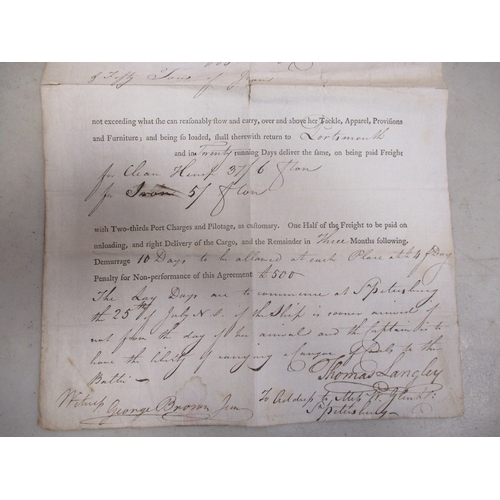 of Fifty Tons of Iron
not exceeding what she can reasonably stow and carry, over and above her Tackle, Apparel, Provisions
and Furniture; and being so loaded, shall therewith return to Portsmouth
and in Twenty running Days deliver the same, on being paid Freight
for Clean Hemp 37/6 ⅌ ton
for Iron 5/ ⅌ ton
with Two-thirds Port Charges and Pilotage, as customary. One Half of the Freight to be paid on
unloading, and right Delivery of the Cargo, and the Remainder in Three Months following.
Demurrage 10 Days to be allowed at each Place at £4 ⅌ Day
Penalty for Non-performance of this Agreement £500
The Lay Days are to commence at St Petersburg
the 25th of July N.S. if the Ship is sooner arrived if
not from the day of her arrival and the Captain is to
have the liberty of carrying a Cargo of to the
Baltic
Thomas Langley
Witness George Brown Junr
To Address to Mess
St Petersburg